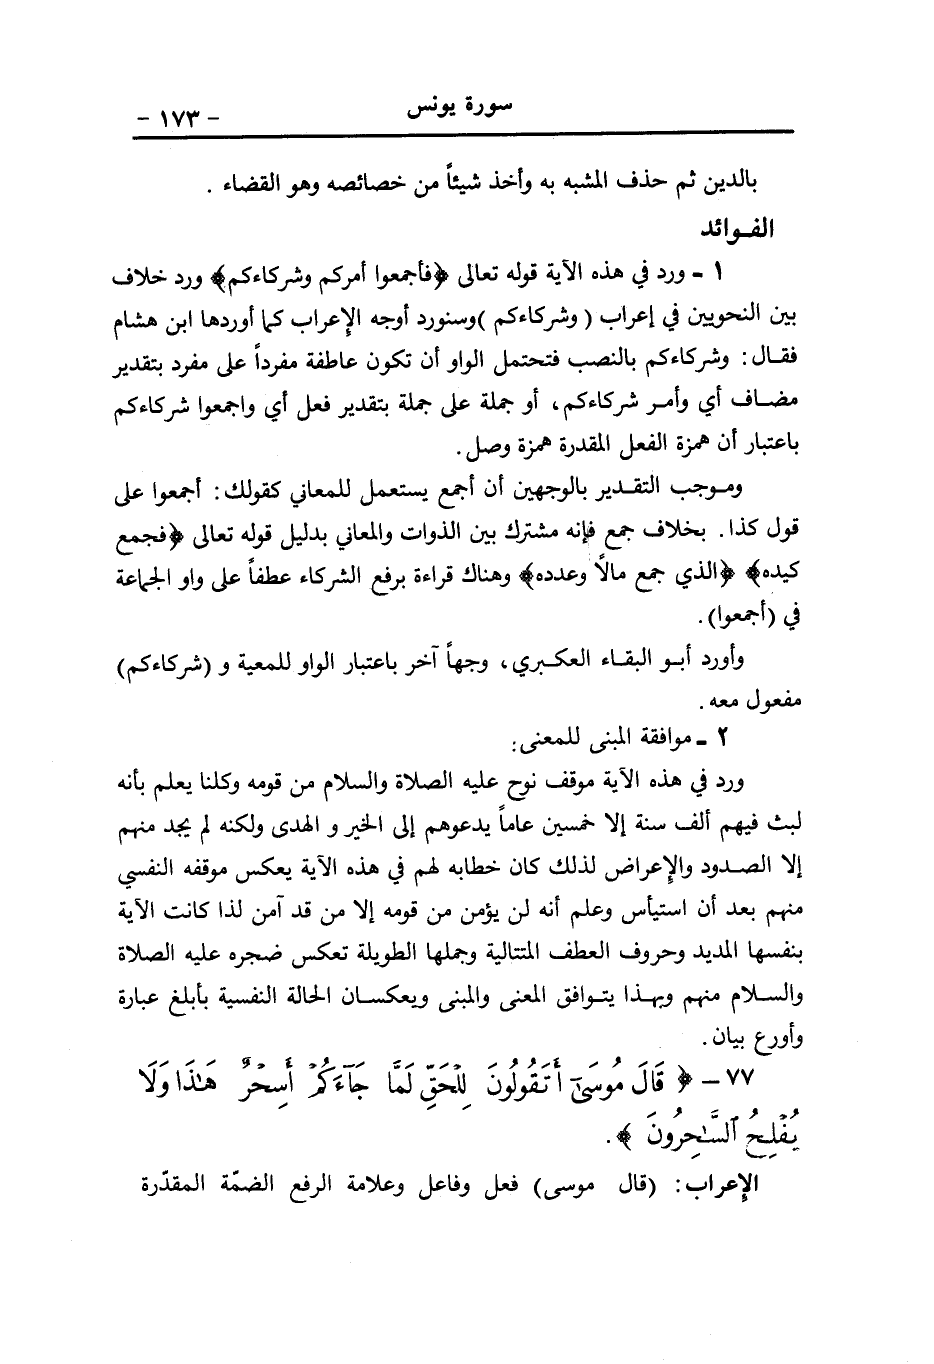 سورة يونس
- ١٧٣ -
بالدين ثم حذف المشبه به وأخذ شيئاً من خصائصه وهو القضاء .
الفـوائد
١ - ورد في هذه الآية قوله تعالى ﴿فأجمعوا أمركم وشركاءكم﴾ ورد خلاف
بين النحويين في إعراب ( وشركاءكم )وسنورد أوجه الإعراب كما أوردها ابن هشام
فقـال : وشركاءكم بالنصب فتحتمل الواو أن تكون عاطفة مفرداً على مفرد بتقدير
مضـاف أي وأمـر شركاءكم، أو جملة على جملة بتقدير فعل أي واجمعوا شركاءكم
باعتبار أن همزة الفعل المقدرة همزة وصل .
ومـوجب التقـدير بالوجهين أن أجمع يستعمل للمعاني كقولك : أجمعوا على
قول كذا . بخلاف جمع فإنه مشترك بين الذوات والمعاني بدليل قوله تعالى ﴿فجمع
كيده﴾ ﴿الذي جمع مالًا وعدده﴾ وهناك قراءة برفع الشركاء عطفاً على واو الجماعة
في (أجمعوا) .
وأورد أبـو البقـاء العكـبري، وجهاً آخر باعتبار الواو للمعية و (شركاءكم)
مفعول معه .
٢ - موافقة المبنى للمعنى :
ورد في هذه الآية موقف نوح عليه الصلاة والسلام من قومه وكلنا يعلم بأنه
لبث فيهم ألف سنة إلا خمسين عاماً يدعوهم إلى الخير و الهدى ولكنه لم يجد منهم
إلا الصـدود والإعراض لذلك كان خطابه لهم في هذه الآية يعكس موقفه النفسي
منهم بعد أن استيأس وعلم أنه لن يؤمن من قومه إلا من قد آمن لذا كانت الآية
بنفسها المديد وحروف العطف المتتالية وجملها الطويلة تعكس ضجره عليه الصلاة
والسـلام منهم وبهـذا يتـوافق المعنى والمبنى ويعكسـان الحالة النفسية بأبلغ عبارة
وأورع بيان .
٧٧ – ﴿ قَالَ مُوسَىٰٓ أَتَقُولُونَ لِلْحَقِّ لَمَّا جَآءَكُمْ أَسِحْرٌ هَـٰذَا وَلَا
يُفْلِحُ ٱلسَّـٰحِرُونَ ﴾ .
الإعراب : (قال موسى) فعل وفاعل وعلامة الرفع الضمّة المقدّرة